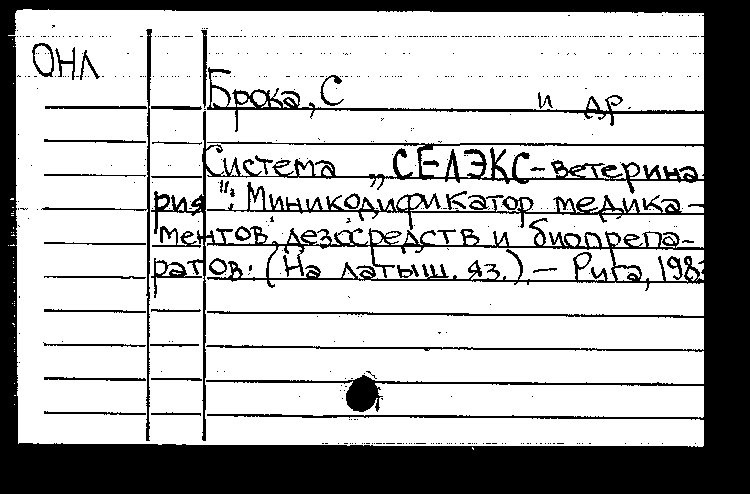 ОНЛ
Брока, С и др.
Система „СЕЛЭКС-ветерина
рия": Миникодификатор медика-
ментов, дезсредств и биопрепа-
ратов. (На латыш. яз.) – Рига,